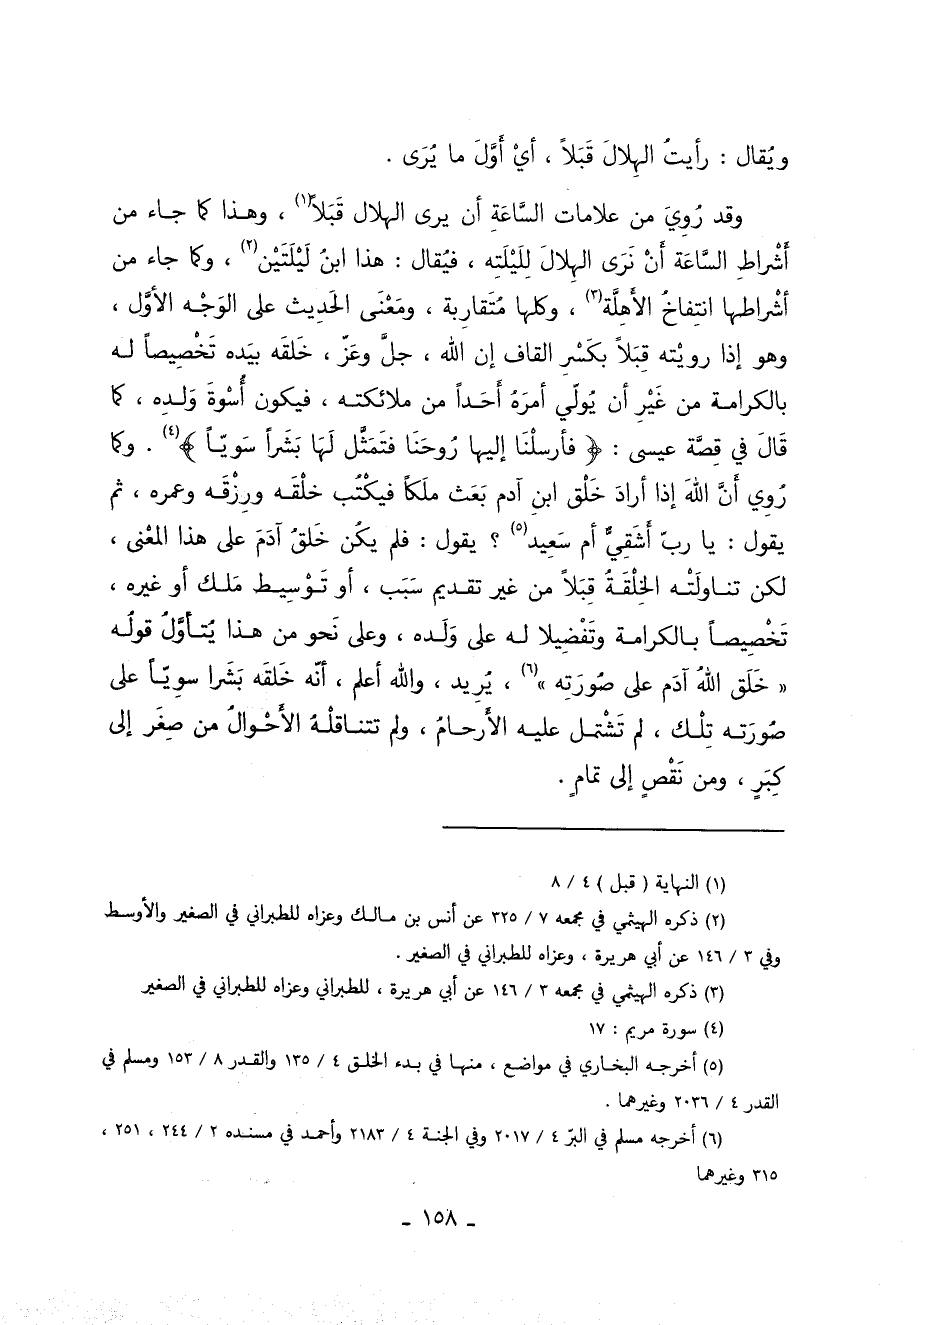 ويُقال : رأيتُ الهِلالَ قَبَلاً ، أيْ أَوَّلَ ما يُرَى .
وقد رُوِيَ من علامات السَّاعَةِ أن يرى الهلال قَبَلاً(١) ، وهـذا كا جـاء من
أَشْراطِ السَّاعَة أنْ نَرَى الهِلالَ لِلَيْلَتِه ، فيُقال : هذا ابنُ لَيْلَتَيْن(٢) ، وكا جاء من
أشْراطـها انتِفاخُ الأَهِلَّة(٣) ، وكلها مُتَقاربة ، ومَعْنَى الحَدِيث على الوَجْـه الأوَّل ،
وهـو إذا رويْتـه قِبَلاً بكَسْرِ القاف إن الله ، جلَّ وعَزّ ، خَلقَه بيَده تَخْصِيصاً لـه
بالكرامـة من غَيْرِ أن يُولّي أمرَهُ أحَـداً من ملائكتـه ، فيكون أُسْوةَ وَلـدِه ، كا
قَالَ في قصَّة عيسى : ﴿ فأرسلْنَا إليها رُوحَنَا فتَمَثَّل لَهَا بَشَراً سَويّـاً ﴾(٤) . وكا
رُوِي أنَّ اللهَ إذا أرادَ خَلْق ابنِ آدم بَعَث ملَكاً فيكْتُب خلْقَـه ورِزْقَـه وعمره ، ثم
يقول : يا ربّ أَشَقِيٌّ أم سَعِيد(٥) ؟ يقول : فلم يكُن خَلقُ آدَمَ على هذا المَعْنى ،
لكن تنـاولَتْـه الخِلْقَـةُ قِبَلاً من غير تقديم سَبَب ، أو تَـوْسِيـط مَلـك أو غيره ،
تَخْصِيصـاً بـالكرامـة وتَفْضِيلا لـه على وَلَـده ، وعلى نَحو من هـذا يُتـأوَّلُ قولُـه
« خَلَق اللهُ آدَم على صُورَتِه »(٦) ، يُرِيد ، والله أعلم ، أنّه خَلقَه بَشَرا سويّـاً على
صُورَتـه تِلْـك ، لم تَشْتَمـل عليـه الأَرحـامُ ، ولم تتنـاقلْـهُ الأَحْـوالُ من صِغَر إلى
كِبَرٍ ، ومن نَقْصٍ إلى تمامٍ .
(١) النهاية ( قبل ) ٤ / ٨
(٢) ذكره الهيثمي في مجمعه ٧ / ٣٢٥ عن أنس بن مـالـك وعزاه للطبراني في الصغير والأوسط
وفي ٣ / ١٤٦ عن أبي هريرة ، وعزاه للطبراني في الصغير .
(٣) ذكره الهيثمي في مجمعه ٣ / ١٤٦ عن أبي هريرة ، للطبراني وعزاه للطبراني في الصغير
(٤) سورة مريم : ١٧
(٥) أخرجـه البخـاري في مواضـع ، منهـا في بـدء الخلـق ٤ / ١٣٥ والقـدر ٨ / ١٥٣ ومسلم في
القدر ٤ / ٢٠٣٦ وغيرهما .
(٦) أخرجه مسلم في البرّ ٤ / ٢٠١٧ وفي الجنة ٤ / ٢١٨٣ وأحمـد في مسنـده ٢ / ٢٤٤ ، ٢٥١ ،
٣١٥ وغيرهما
ـ ١٥٨ ـ